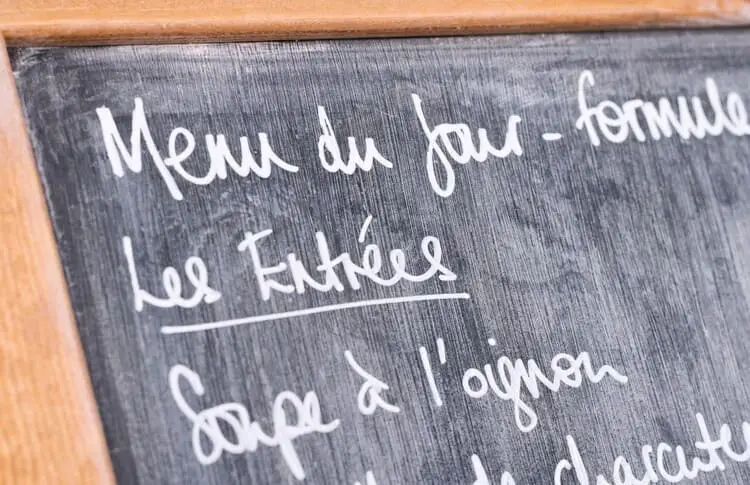 Menu du Jour - formule
Les Entrées
Soupe à l'oignon
de charcute